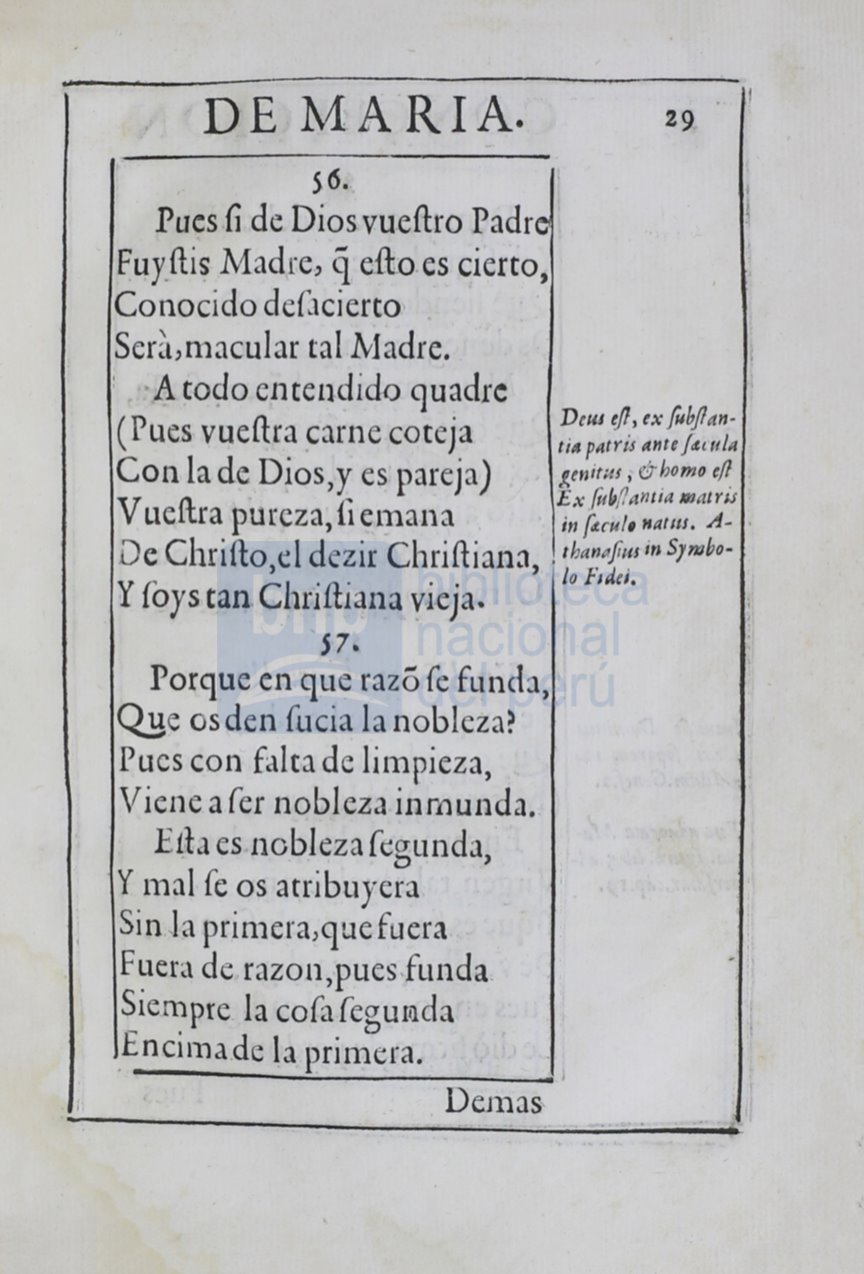 DE MARIA.
29
56.
Pues ſi de Dios vueſtro Padre
Fuyſtis Madre, q̃ eſto es cierto,
Conocido deſacierto
Serà, macular tal Madre.
A todo entendido quadre
(Pues vueſtra carne coteja
Con la de Dios, y es pareja)
Vueſtra pureza, ſi emana
De Chriſto, el dezir Chriſtiana,
Y ſoys tan Chriſtiana vieja.
57.
Porque en que razõ ſe funda,
Que os den ſucia la nobleza?
Pues con falta de limpieza,
Viene a ſer nobleza inmunda.
Eſta es nobleza ſegunda,
Y mal ſe os atribuyera
Sin la primera, que fuera
Fuera de razon, pues funda
Siempre la coſa ſegunda
Encima de la primera.
Demas
Deus eſt, ex ſubſtan-
tia patris ante ſæcula
genitus, & homo eſt
Ex ſubſtantia matris
in ſæculo natus. A-
thanaſius in Symbo-
lo Fidei.
bnp
biblioteca
nacional
del perú